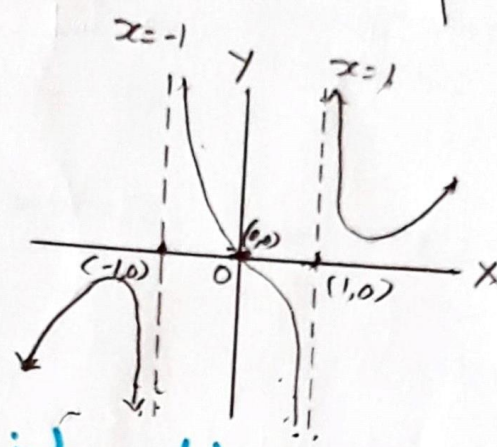 x=-1
Y
x=1
(0,0)
(-1,0)
O
(1,0)
X